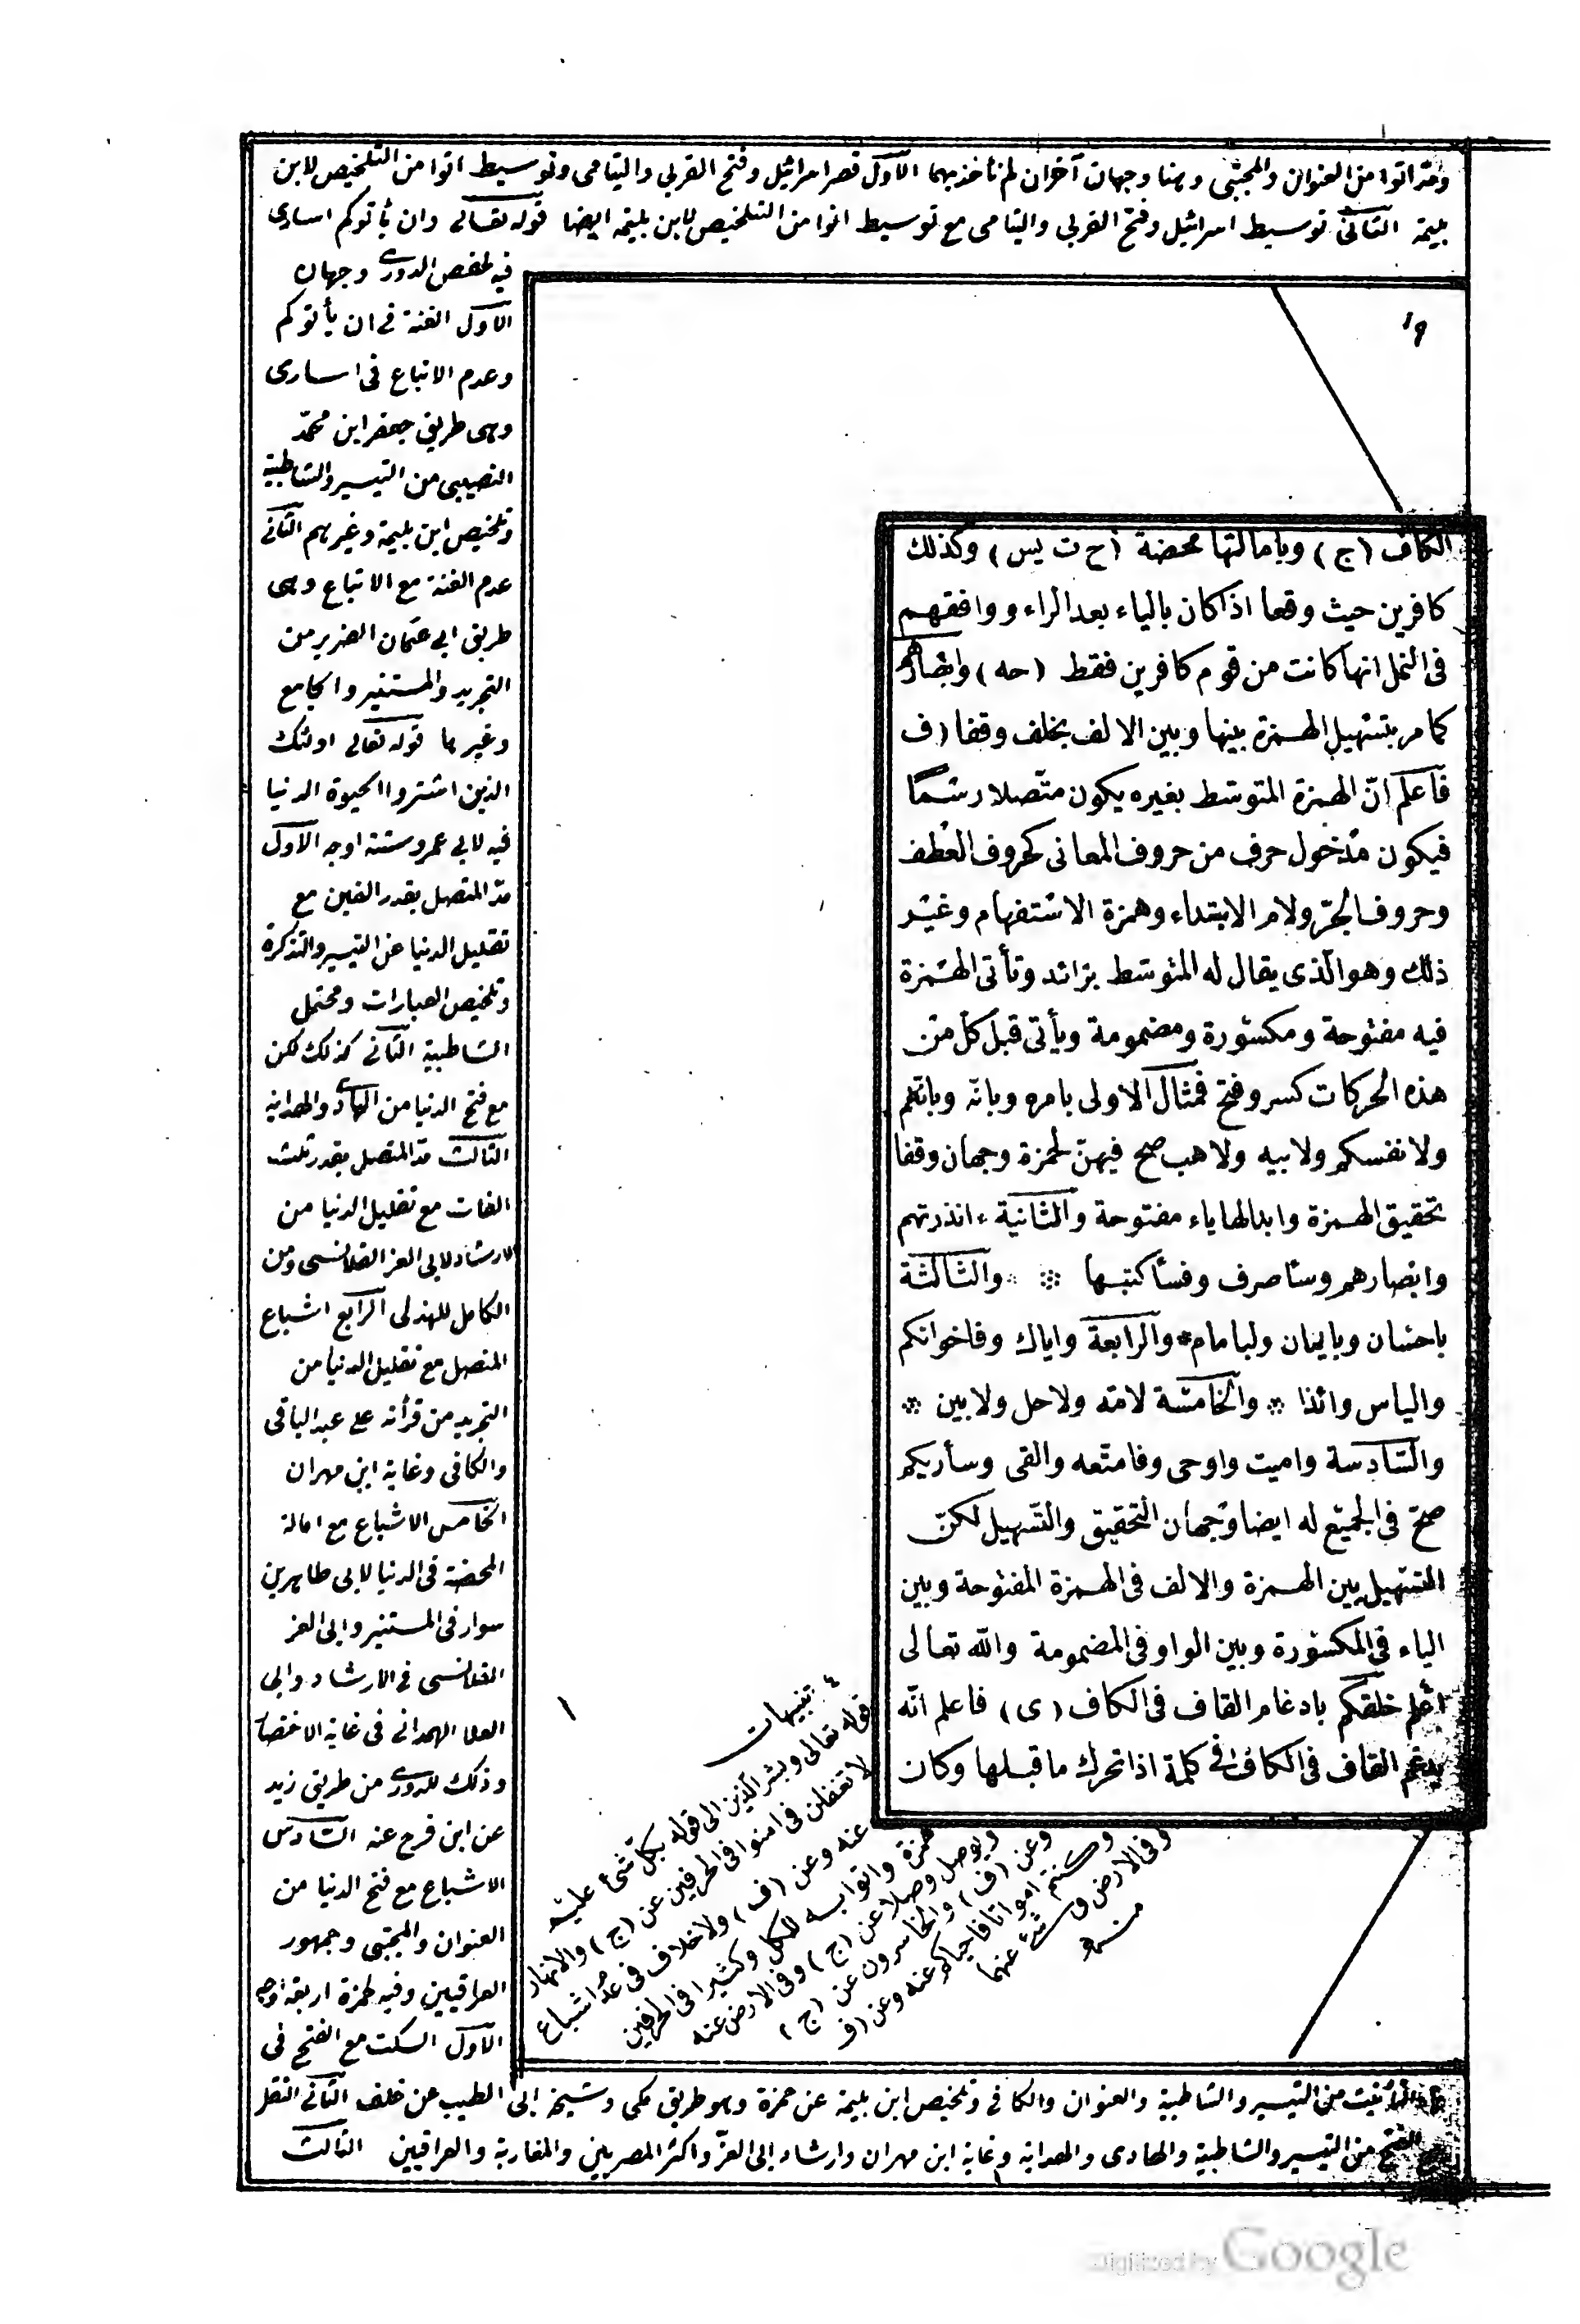 ومد اتوا من العنوان والمجتبى وهنا وجهان آخران لم نأخذ بهما الاول قصر اسرائيل وفتح القربى واليتامى وتوسيط اتوا من التلخيص لابن
بليمة الثانى توسيط اسرائيل وفتح القربى واليتامى مع توسيط اتوا من التلخيص لابن بليمة ايضا قوله تعالى وان يأتوكم اسارى
فيه لحفص الدورى وجهان
الاول الغنة فى ان يأتوكم
وعدم الاتباع فى اسارى
وهى طريق جعفر ابن محمد
النصيبى من التيسير والشاطبية
وتلخيص ابن بليمة وغيرهم الثانى
عدم الغنة مع الاتباع وهى
طريق ابى عثمان الضرير من
التجريد والمستنير والجامع
وغيرها قوله تعالى اولئك
الذين اشتروا الحيوة الدنيا
فيه لابى عمرو ستة اوجه الاول
مد المتصل بقدر الفين مع
تقليل الدنيا عن التيسير والتذكرة
وتلخيص العبارات ومحتمل
الشاطبية الثانى كذلك لكن
مع فتح الدنيا من الهادى والهداية
الثالث مد المتصل بقدر ثلث
الفات مع تقليل الدنيا من
الارشاد لابى العز القلانسى ومن
الكامل للهذلى الرابع اشباع
المتصل مع تقليل الدنيا من
التجريد من قرأته على عبد الباقى
والكافى وغاية ابن مهران
الخامس الاشباع مع امالة
المحضة فى الدنيا لابى طاهر بن
سوار فى المستنير وابى العز
القلانسى فى الارشاد وابى
العلا الهمدانى فى غاية الاختصار
وذلك للدورى من طريق زيد
عن ابن فرح عنه السادس
الاشباع مع فتح الدنيا من
العنوان والمجتبى وجمهور
العراقيين وفيه لحمزة اربعة اوجه
الاول السكت مع الفتح فى
من التيسير والشاطبية والعنوان والكافى وتلخيص ابن بليمة عن حمزة وهو طريق مكى وشيخه ابى الطيب عن خلف الثانى النقل
الفتح من التيسير والشاطبية والهادى والهداية وغاية ابن مهران وارشاد ابى العز واكثر المصريين والمغاربة والعراقيين الثالث
١٩
الكاف (ج) وبامالتها محضة (ح ت يس) وكذلك
كافرين حيث وقعا اذا كان بالياء بعد الراء ووافقهم
فى النمل انها كانت من قوم كافرين فقط (حه) وابصارهم
كما مر بتسهيل الهمزة بينها وبين الالف بخلف وقفا (ف
فاعلم انّ الهمزة المتوسط بغيره يكون متّصلا رسمًا
فيكون مدخول حرف من حروف المعانى كحروف العطف
وحروف الجرّ ولام الابتداء وهمزة الاستفهام وغير
ذلك وهو الّذى يقال له المتوسط بزائد وتأتى الهمزة
فيه مفتوحة ومكسورة ومضمومة ويأتى قبل كل من
هذه الحركات كسر وفتح فمثال الاولى بامره وبانّه وبانّهم
ولانفسكم ولابيه ولاهب صح فيهنّ لحمزة وجهان وقفا
تحقيق الهمزة وابدالها ياء مفتوحة والثانية ءانذرتهم
وابصارهم وساصرف وفسأكتبها والثالثة
باحسان وبايمان ولبامام * والرابعة واياك وفاخوانكم
والياس وائذا * والخامسة لامّه ولاحل ولابين *
والسّادسة واميت واوحى وفامتّعه والقى وسأريكم
صحّ فى الجميع له ايضا وجهان التحقيق والتّسهيل لكنّ
التسهيل بين الهمزة والالف فى الهمزة المفتوحة وبين
الياء فى المكسورة وبين الواو فى المضمومة والله تعالى
اعلم خلقكم بادغام القاف فى الكاف (ى) فاعلم انّه
يدغم القاف فى الكاف فى كلمة اذا تحرك ما قبلها وكان
٤ تنبيهات
قوله تعالى وبشر الّذين الى قوله بكلّ شئ عليم
لا تغفلن فى امنوا فى الحرفين عن (ج) والانهار
عنه وعن (ف) ولا خلاف فى عدم اشباع
همزة واتوا به للكل وكثيرا فى الحرفين
ويوصل وصلا عن (ج) وفى الارض عنه
وعن (ف) والخاسرون عن (ج)
وكنتم امواتا فاحياكم عنه وعن (ف
وفى الارض وشئ عنهما
منه
Digitized by Google